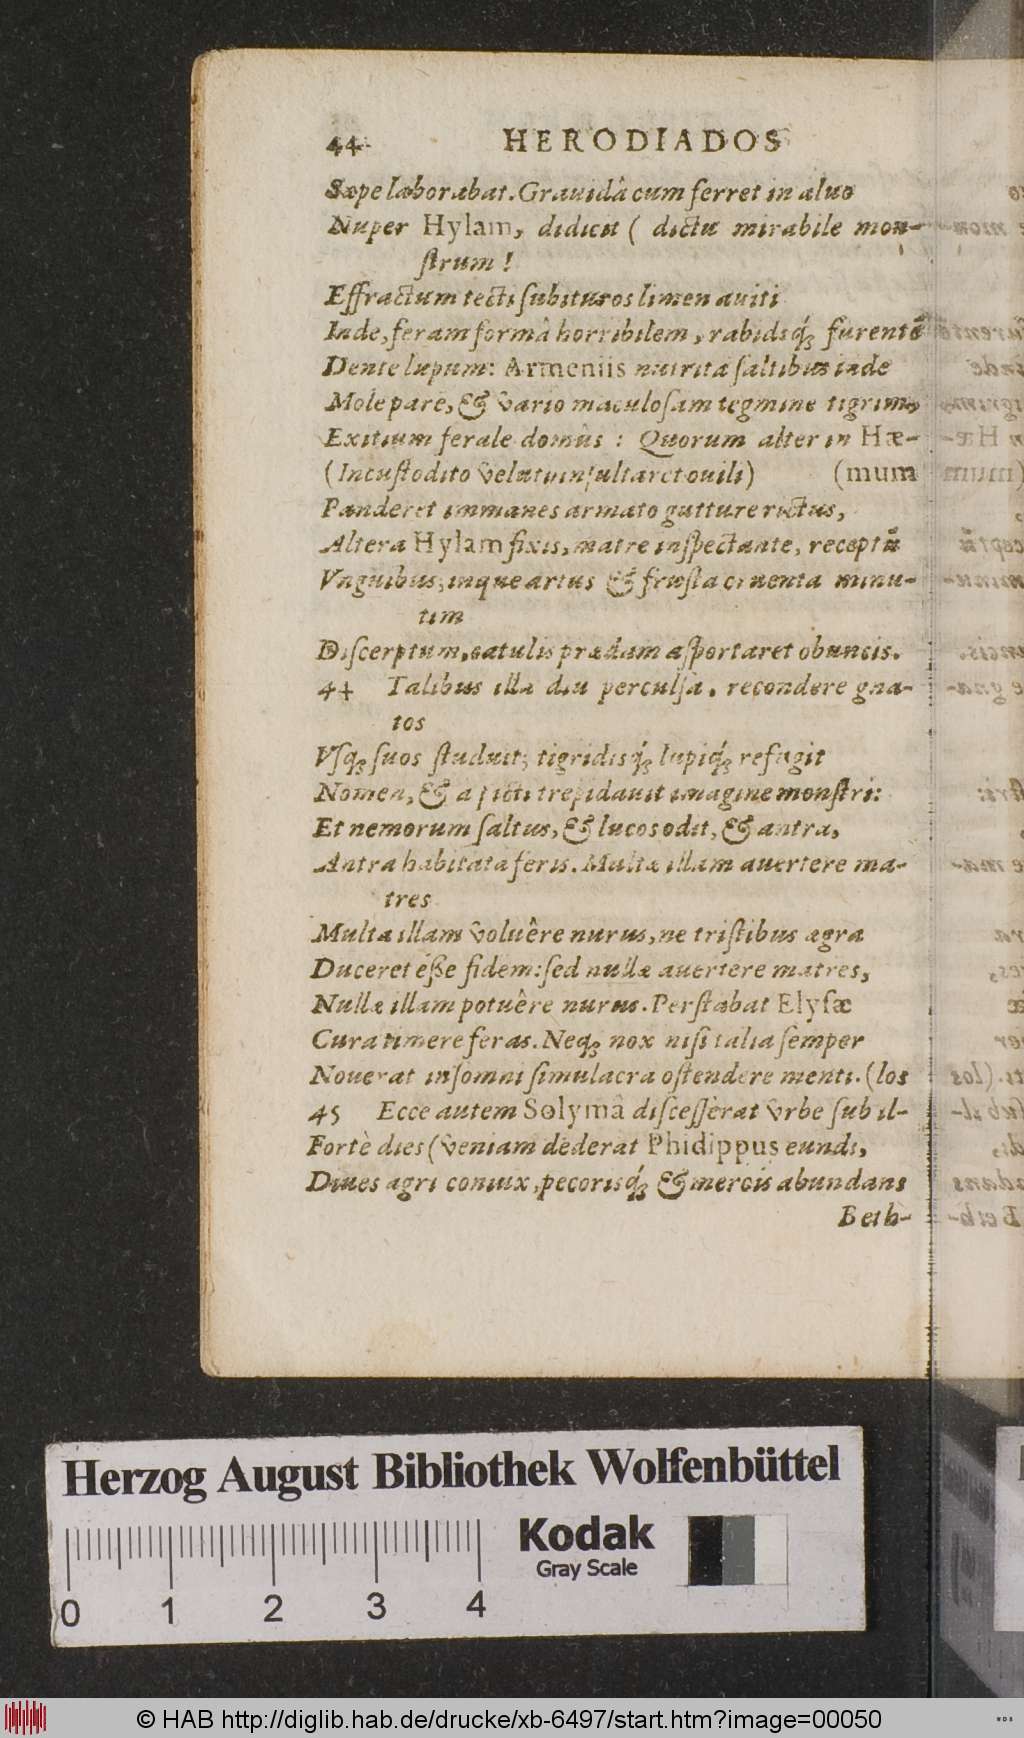 44 HERODIADOS
Sæpe laborabat. Grauidâ cum ferret in aluo
Nuper Hylam, didicit ( dictu mirabile mon-
strum !
Effractum tecti subituros limen auiti
Inde, feram formâ horribilem, rabidiq́; furentē
Dente lupum: Armeniis nutritã saltibus inde
Mole pare, & vario maculosam tegmine tigrim,
Exitium ferale domûs : Quorum alter in Hæ-
(Incustodito velut insultaret ouili) (mum
Panderet immanes armato gutture rictus,
Altera Hylam fixis, matre inspectante, receptū
Vnguibus, inque artus & frusta cruenta minu-
tim
Discerptum, catulis prædam asportaret obuncis.
44 Talibus illa diu perculsa, recondere gna-
tos
Vsq; suos studuit; tigridisq́; lupiq́; refugit
Nomen, & a picti trepidauit imagine monstri:
Et nemorum saltus, & lucos odit, & antra,
Antra habitata feris. Multæ illam auertere ma-
tres
Multa illam voluêre nurus, ne tristibus ægra
Duceret esse fidem: sed nullæ auertere matres,
Nullæ illam potuêre nurus. Perstabat Elysæ
Cura timere feras. Neq; nox nisi talia semper
Nouerat insomni simulacra ostendere menti. (los
45 Ecce autem Solymâ discesserat vrbe sub il-
Fortè dies (veniam dederat Phidippus eundi,
Diues agri coniux, pecorisq́; & mercis abundans
Beth-
Herzog August Bibliothek Wolfenbüttel
Kodak
Gray Scale
0 1 2 3 4
© HAB http://diglib.hab.de/drucke/xb-6497/start.htm?image=00050